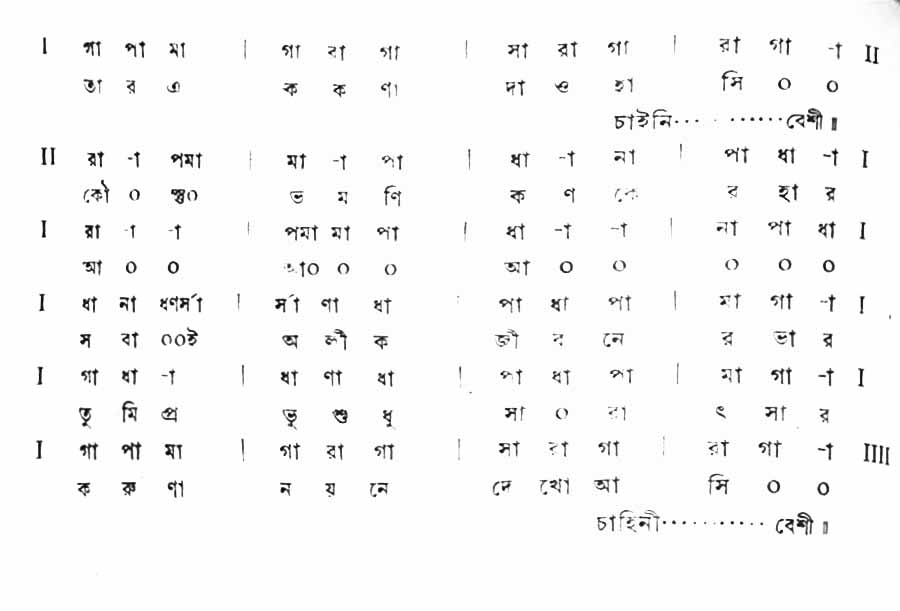 I গা পা মা | গা রা গা | সা রা গা | রা গা -া II
তা র এ ক ক ণা দা ও হা সি ০ ০
চাইনি············বেশী॥
II রা -া পমা | মা -া পা | ধা -া না | পা ধা -া I
কৌ ০ স্তু০ ভ ম ণি ক ণ কে র হা র
I রা -া -া | পমা মা পা | ধা -া -া | না পা ধা I
আ ০ ০ আ০ ০ ০ আ ০ ০ ০ ০ ০
I ধা না ধণর্সা | র্সা ণা ধা | পা ধা পা | মা গা -া I
স বা ০০ই অ লী ক জী ব নে র ভা র
I গা ধা -া | ধা ণা ধা | পা ধা পা | মা গা -া I
তু মি প্র ভু শু ধু সা ০ রা ৎ সা র
I গা পা মা | গা রা গা | সা রা গা | রা গা -া IIII
ক রু ণা ন য় নে দে খো আ সি ০ ০
চাহিনী···········বেশী॥